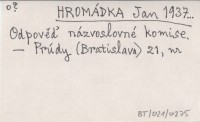 o?
HROMÁDKA Jan 1937...
Odpověď názvoslovné komise.
— Prúdy (Bratislava) 21, nr
BT/021/0275